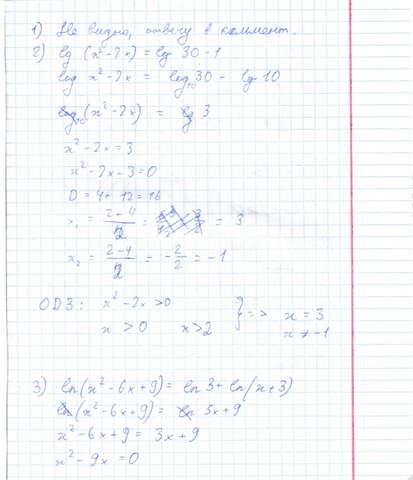 1) Не видно, отвечу в коммент.
2) lg (x²-2x) = lg 30 - 1
log x²-2x = log₁₀ 30 - lg 10
log₁₀ (x²-2x) = lg 3
x²-2x = 3
x²-2x-3=0
D = 4+12=16
x₁ = (2+4)/2 = = 3
x₂ = (2-4)/2 = -2/2 = -1
ОДЗ: x²-2x>0
x > 0 x>2 } => x = 3
x ≠ -1
3) ln(x²-6x+9) = ln 3 + ln(x+3)
ln(x²-6x+9) = ln 3x+9
x²-6x+9 = 3x+9
x²-9x = 0